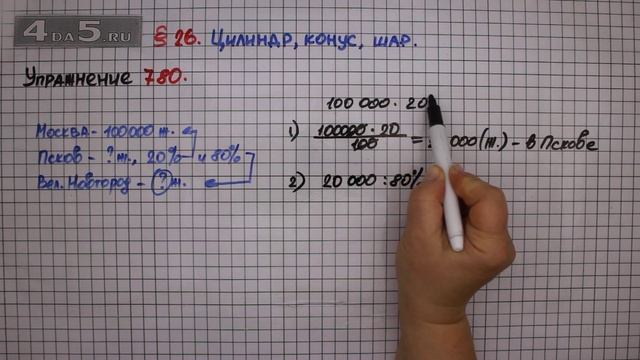 4DA5.RU
§ 26. Цилиндр, конус, шар.
Упражнение 780.
Москва - 100000 т.
Псков - ? т., 20% и 80%
Вел. Новгород - ? т.
100 000 · 20
1) 100000 · 20 / 100 = 000 (т.) - в Пскове
2) 20 000 : 80%